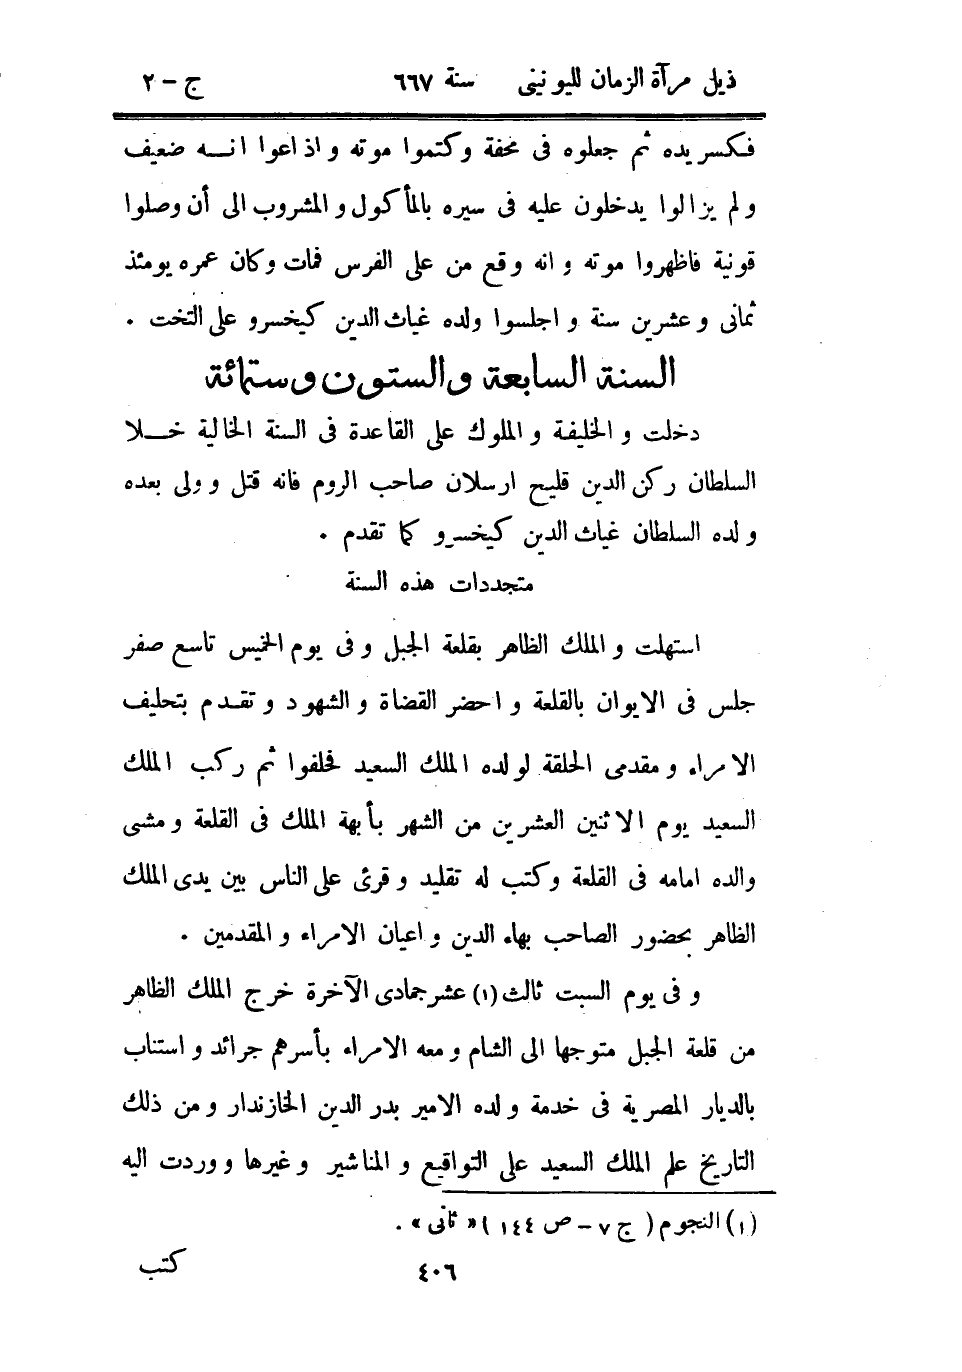 ذيل مرآة الزمان لليونينى سنة ٦٦٧ ج - ٢
فكسر يده ثم جعلوه فى محفة وكتموا موته واذاعوا انه ضعيف
ولم يزالوا يدخلون عليه فى سيره بالمأكول والمشروب الى أن وصلوا
قونية فاظهروا موته وانه وقع من على الفرس فمات وكان عمره يومئذ
ثمانى وعشرين سنة واجلسوا ولده غياث الدين كيخسرو على التخت .
السنة السابعة والستون وستمائة
دخلت والخليفة والملوك على القاعدة فى السنة الخالية خلا
السلطان ركن الدين قليج ارسلان صاحب الروم فانه قتل وولى بعده
ولده السلطان غياث الدين كيخسرو كما تقدم .
متجددات هذه السنة
استهلت والملك الظاهر بقلعة الجبل وفى يوم الخميس تاسع صفر
جلس فى الايوان بالقلعة واحضر القضاة والشهود وتقدم بتحليف
الامراء ومقدمى الحلقة لولده الملك السعيد فحلفوا ثم ركب الملك
السعيد يوم الاثنين العشرين من الشهر بأبهة الملك فى القلعة ومشى
والده امامه فى القلعة وكتب له تقليد وقرئ على الناس بين يدى الملك
الظاهر بحضور الصاحب بهاء الدين واعيان الامراء والمقدمين .
وفى يوم السبت ثالث (١) عشر جمادى الآخرة خرج الملك الظاهر
من قلعة الجبل متوجها الى الشام ومعه الامراء بأسرهم جرائد واستناب
بالديار المصرية فى خدمة ولده الامير بدر الدين الخازندار ومن ذلك
التاريخ علم الملك السعيد على التواقيع والمناشير وغيرها ووردت اليه
(١) النجوم ( ج ٧ - ص ١٤٤ ) « ثانى » .
٤٠٦ كتب